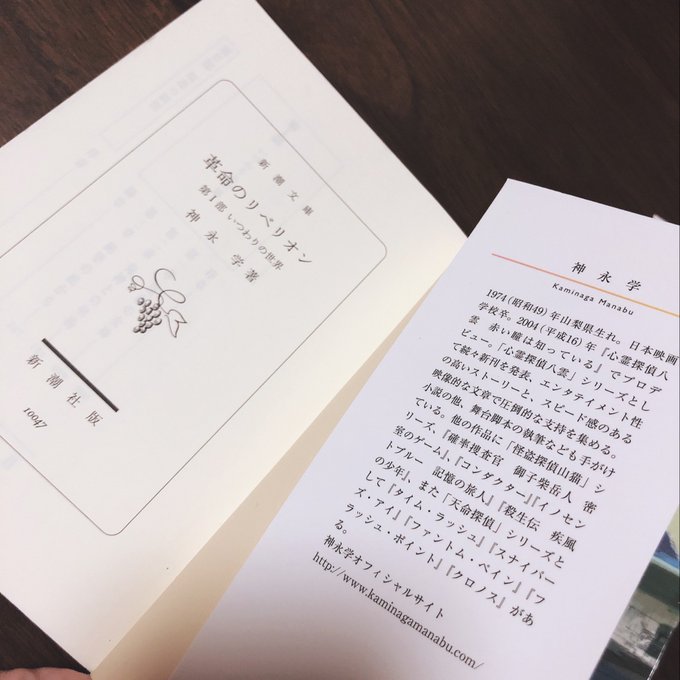 新潮文庫
革命のリベリオン
第Ⅰ部 いつわりの世界
神永 学著
新潮社版
10047
神永学
Kaminaga Manabu
1974(昭和49)年山梨県生れ。日本映画
学校卒。2004(平成16)年『心霊探偵八
雲 赤い瞳は知っている』でプロデ
ビュー。「心霊探偵八雲」シリーズとし
て続々新刊を発表、エンタテイメント性
の高いストーリーと、スピード感のある
映像的な文章で圧倒的な支持を集める。
小説の他、舞台脚本の執筆なども手がけ
ている。他の作品に「怪盗探偵山猫」シ
リーズ、『確率捜査官 御子柴岳人 密
室のゲーム』、『コンダクター』『イノセン
トブルー 記憶の旅人』『殺生伝 疾風
の少年』、また「天命探偵」シリーズと
して『タイム・ラッシュ』『スナイパー
ズ・アイ』『ファントム・ペイン』『フ
ラッシュ・ポイント』『クロノス』があ
る。
神永学オフィシャルサイト
http://www.kaminagamanabu.com/